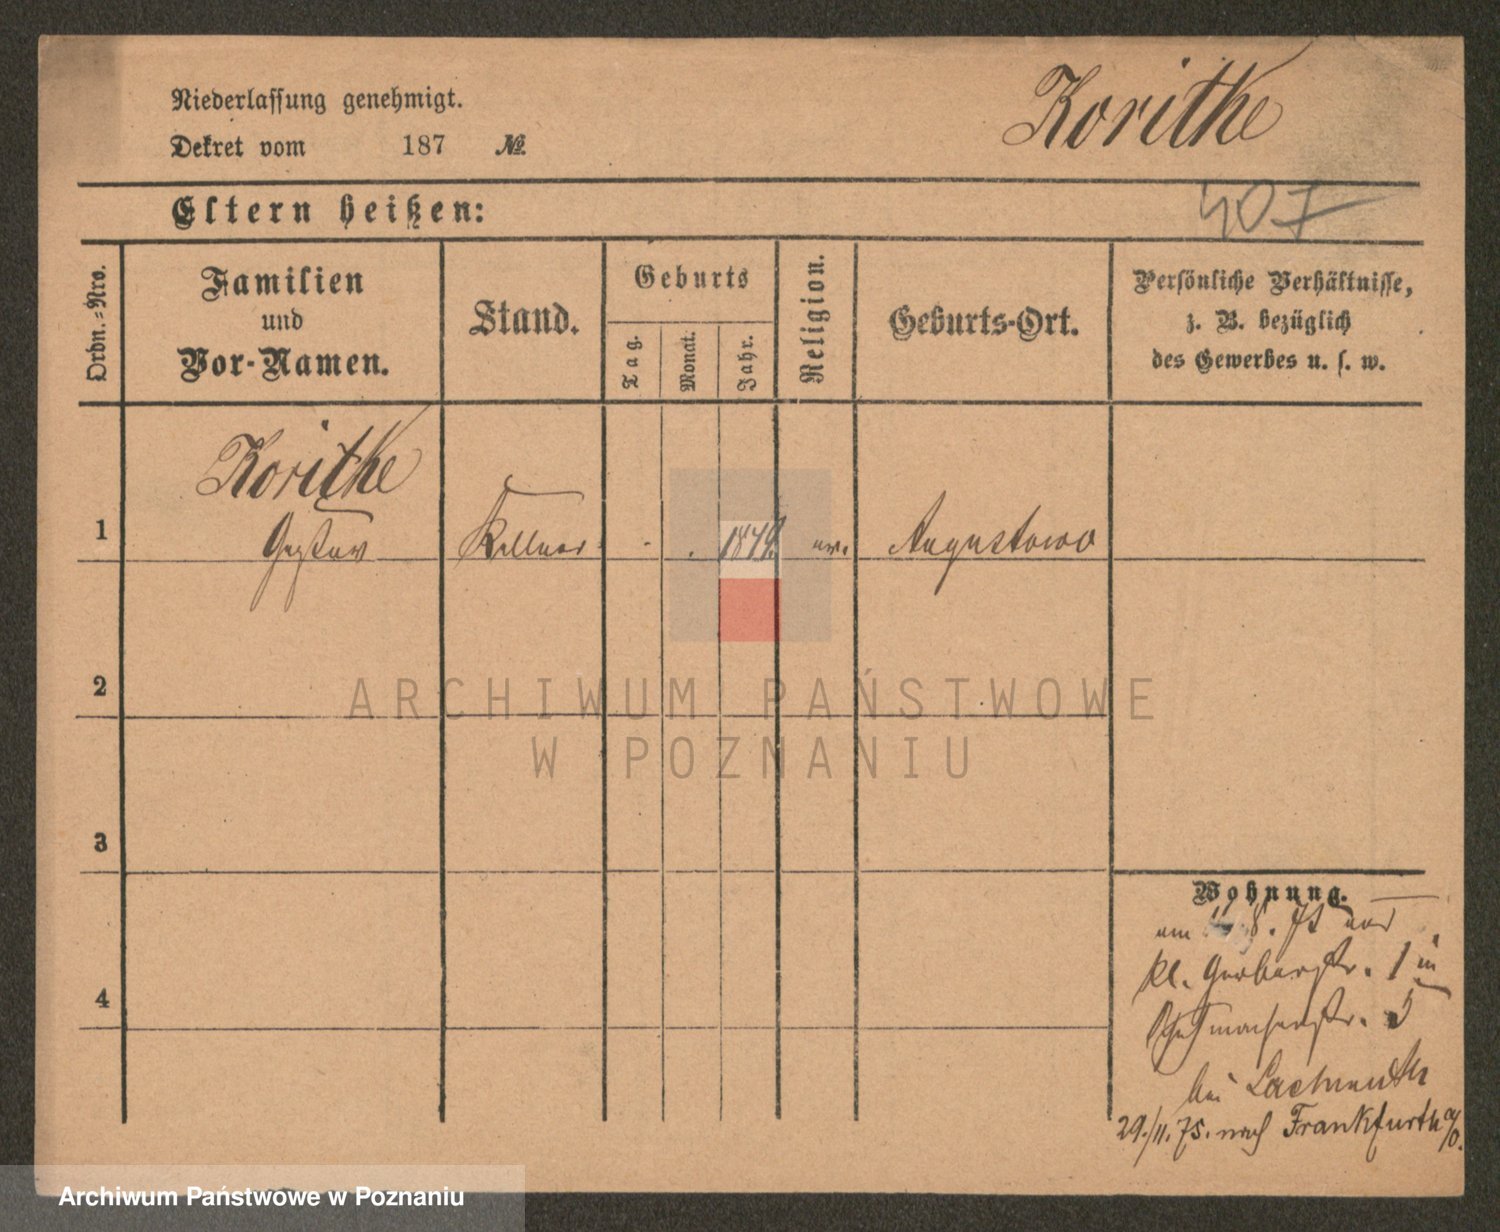 Niederlassung genehmigt.
Dekret vom 187 №
Koritke
Eltern heißen:
407
Ordn.=Nro.
Familien
und
Vor-Namen.
Stand.
Geburts
Tag.
Monat.
Jahr.
Religion.
Geburts-Ort.
Persönliche Verhältnisse,
z. B. bezüglich
des Gewerbes u. s. w.
Koritke
1 Gustav Kellner . . 1849 ev. Augustowo
2
ARCHIWUM PAŃSTWOWE
W POZNANIU
3
Wohnung.
am 8. 75 von
kl. Gerberstr. 1 in
Schuhmacherstr. 5
bei
29./11. 75. nach Frankfurth a/O.
4
Archiwum Państwowe w Poznaniu